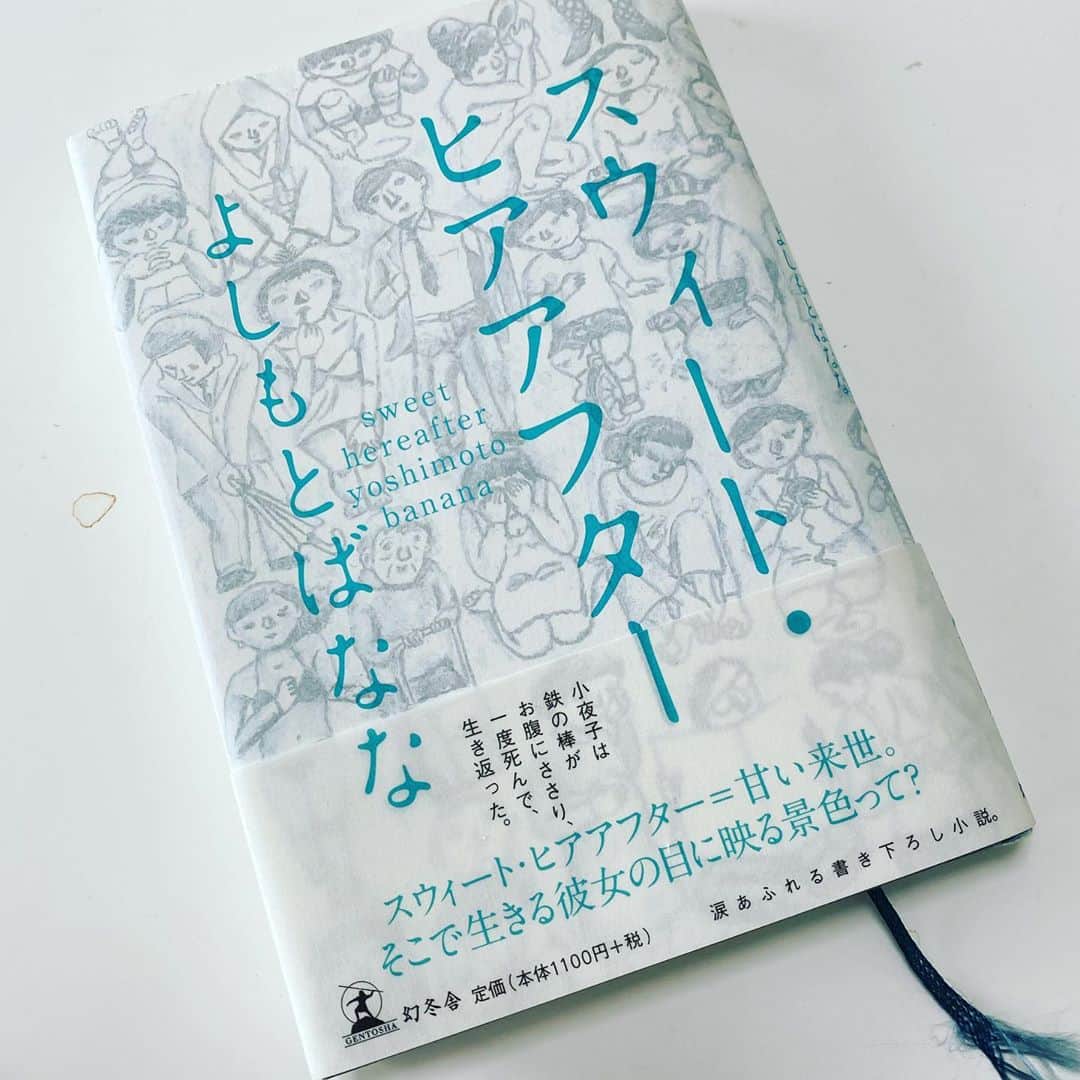 スウィート・
ヒアアフター
よしもとばなな
sweet
hereafter
yoshimoto
banana
よしもとばなな
小夜子は
鉄の棒が
お腹にささり、
一度死んで、
生き返った。
スウィート・ヒアアフター＝甘い来世。
そこで生きる彼女の目に映る景色って？
涙あふれる書き下ろし小説。
GENTOSHA
幻冬舎 定価(本体1100円+税)